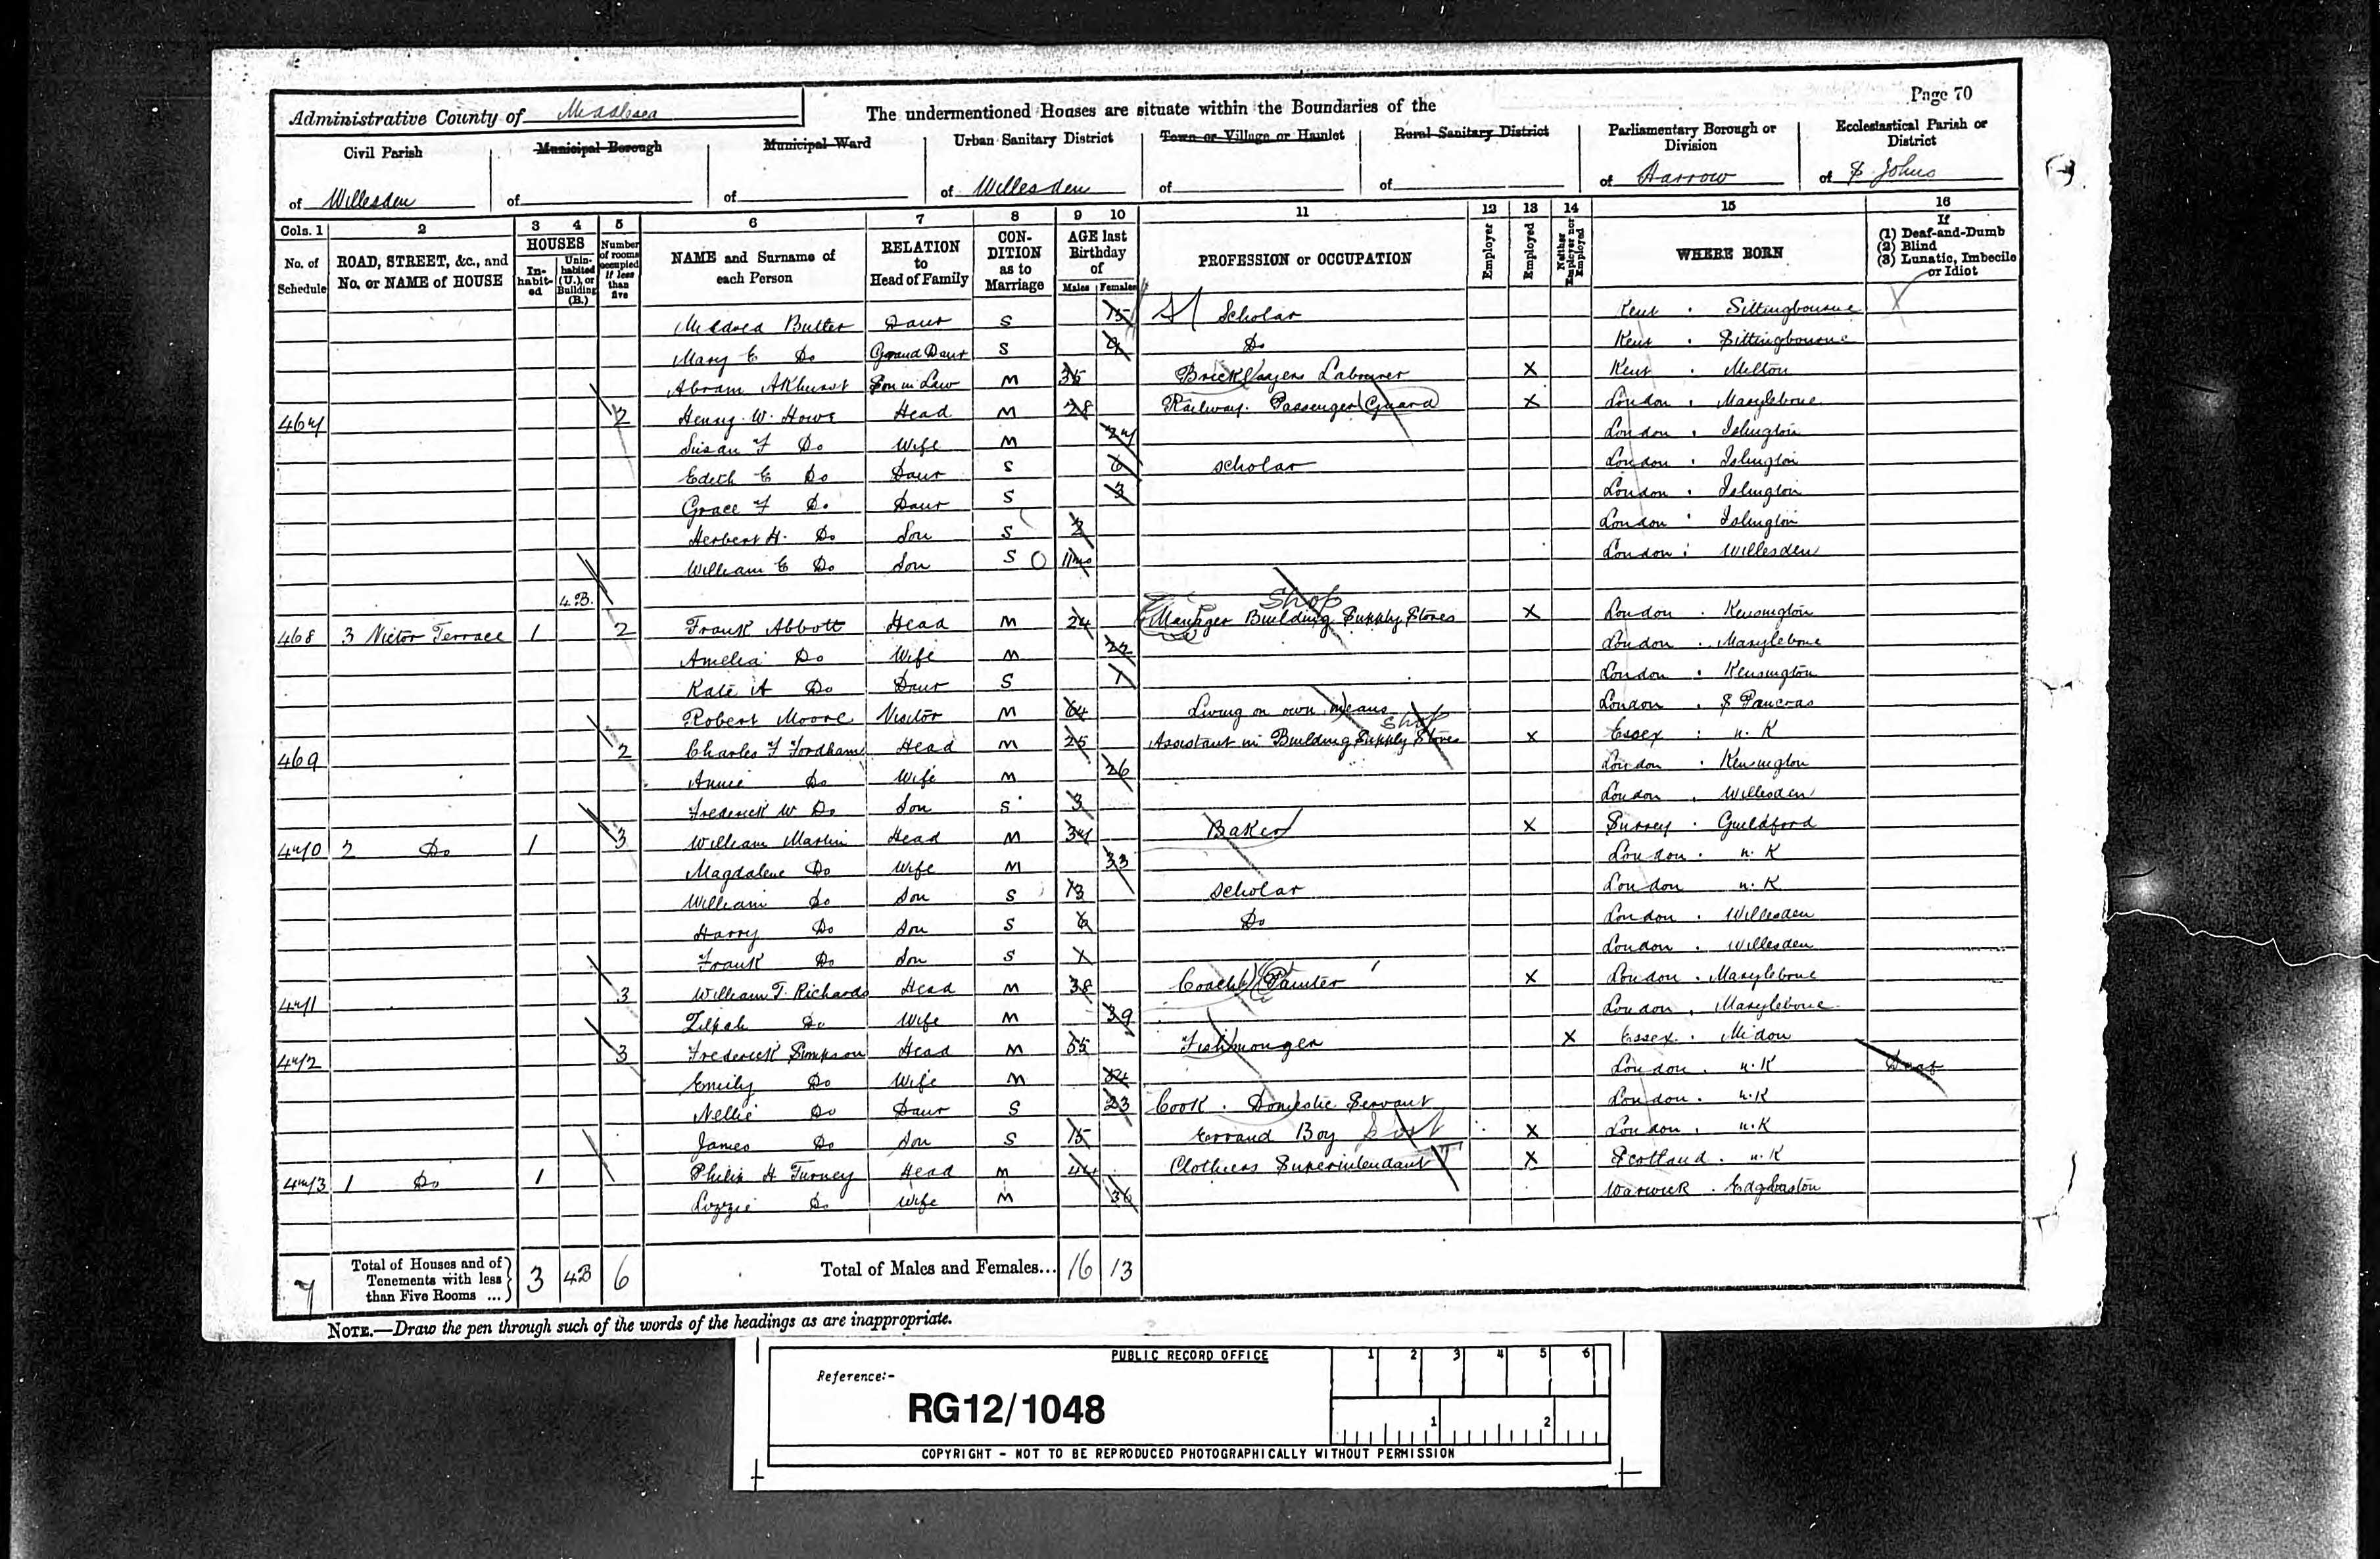 Page 70
Administrative County of Middlesex The undermentioned Houses are situate within the Boundaries of the
Civil Parish of Willesden
Municipal Borough of
Municipal Ward of
Urban Sanitary District of Willesden
Town or Village or Hamlet of
Rural Sanitary District of
Parliamentary Borough or Division of Harrow
Ecclesiastical Parish or District of St Johns
Cols. 1 2 3 4 5 6 7 8 9 10 11 12 13 14 15 16
No. of Schedule
ROAD, STREET, &c., and No. or NAME of HOUSE
HOUSES
Inhabited
Uninhabited (U.), or Building (B.)
Number of rooms occupied if less than five
NAME and Surname of each Person
RELATION to Head of Family
CONDITION as to Marriage
AGE last Birthday of
Males Females
PROFESSION or OCCUPATION
Employer
Employed
Neither Employer nor Employed
WHERE BORN
If
(1) Deaf-and-Dumb
(2) Blind
(3) Lunatic, Imbecile or Idiot
Mildred Butler Daur S 15 Scholar Kent . Sittingbourne
Mary E Do Grand Daur S 9 Do Kent . Sittingbourne
Abram Akhurst Son in Law M 35 Bricklayers Labourer X Kent . Milton
467 2 Henry W. Howe Head M 28 Railway. Passenger Guard X London . Marylebone
Susan F Do Wife M 27 London . Islington
Edith E Do Daur S 6 scholar London . Islington
Grace F Do Daur S 3 London . Islington
Herbert H. Do Son S 2 London . Islington
William E Do Son S 11mo London . Willesden
4.B.
shop
468 3 Victor Terrace 1 2 Frank Abbott Head M 24 Manager Building Supply Stores X London . Kensington
Amelia Do Wife M 22 London . Marylebone
Kate A Do Daur S 1 London . Kensington
Robert Moore Visitor M 64 Living on own means London . S Pancras
shop
469 2 Charles F Fordham Head M 25 Assistant in Building Supply Stores X Essex . n. K
Annie Do Wife M 26 London . Kensington
Frederick W Do Son S 3 London . Willesden
470 2 Do 1 3 William Martin Head M 37 Baker X Surrey . Guildford
Magdalene Do Wife M 33 London . n. K
William Do Son S 13 scholar London n. K
Harry Do Son S 6 Do London . Willesden
Frank Do Son S 1 London . Willesden
471 3 William T. Richards Head M 38 Coach Painter X London . Marylebone
Zilpah Do Wife M 39 London . Marylebone
472 3 Frederick Simpson Head M 55 Fishmonger X Essex .
Emily Do Wife M 54 London . n.K Deaf
Nellie Do Daur S 23 Cook . Domestic Servant London . n.K
James Do Son S 15 Errand Boy X London . n.K
473 1 Do 1 Philip H Turney Head M 44 Clothiers Superintendant X Scotland . n.K
Lizzie Do Wife M 36 Warwick . Edgbaston
7 Total of Houses and of Tenements with less than Five Rooms ... 3 4B 6 Total of Males and Females... 16 13
NOTE.—Draw the pen through such of the words of the headings as are inappropriate.
PUBLIC RECORD OFFICE
1 2 3 4 5 6
Reference:-
RG12/1048
1 2
COPYRIGHT - NOT TO BE REPRODUCED PHOTOGRAPHICALLY WITHOUT PERMISSION